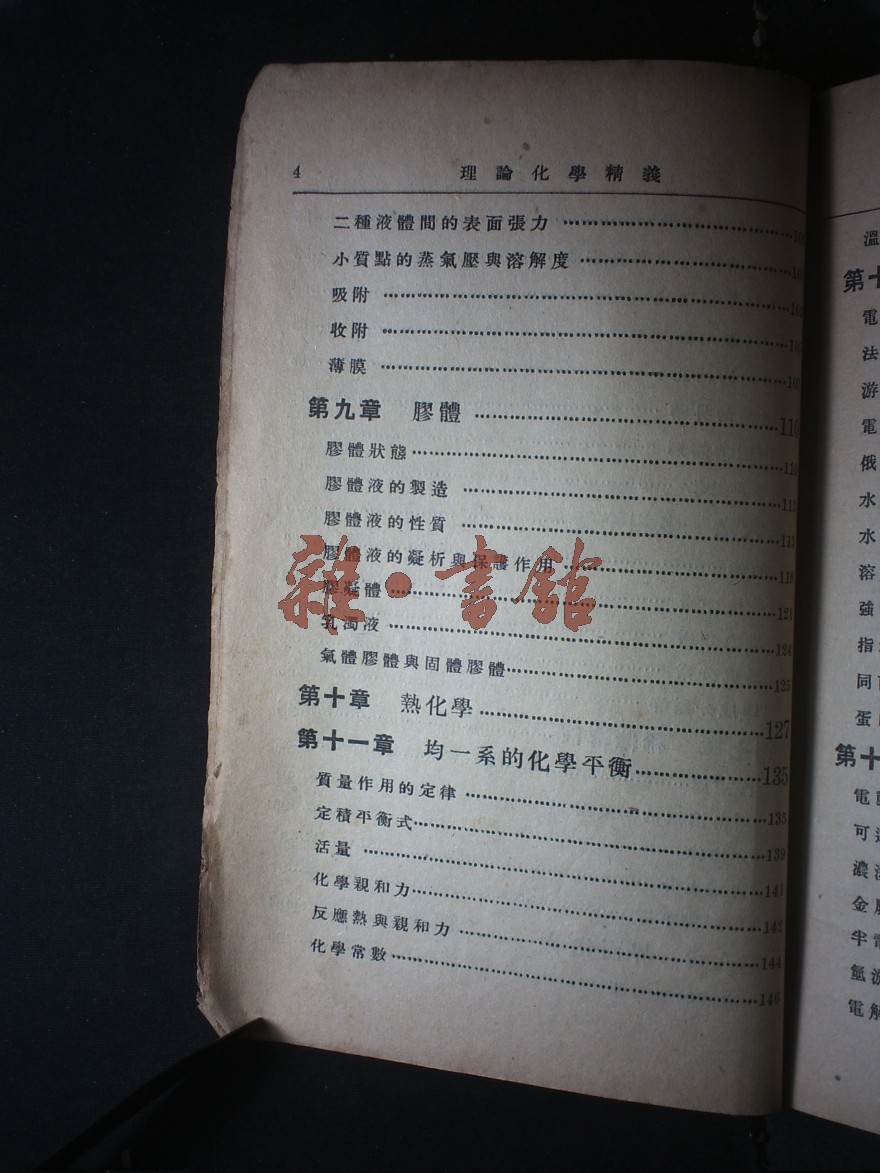 4 理論化學精義
二種液體間的表面張力
小質點的蒸氣壓與溶解度
吸附
收附
薄膜 107
第九章 膠體 110
膠體狀態 110
膠體液的製造
膠體液的性質 113
膠體液的凝析與保護作用 118
膠凝體 121
乳濁液 124
氣體膠體與固體膠體 125
第十章 熱化學 127
第十一章 均一系的化學平衡 135
質量作用的定律 135
定積平衡式 139
活量 141
化學親和力 142
反應熱與親和力 144
化學常數 146
雜·書館
溫
第十
電
法
游
電
俄
水
水
溶
強
指
同
蛋
第十
電
可
濃
金
半
氫
電解